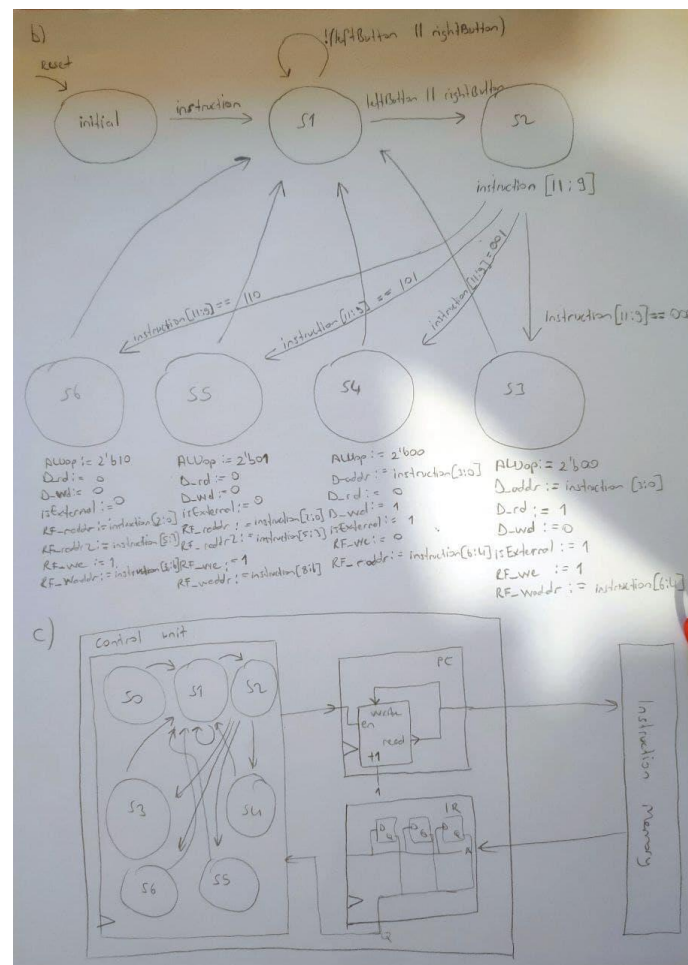 b)
!(leftButton || rightButton)
reset
initial
instruction
S1
leftButton || rightButton
S2
instruction [11:9]
instruction[11:9]== 110
instruction[11:9] == 101
instruction[11:9]=001
instruction[11:9]==00
S6
S5
S4
S3
ALUop := 2'b10
D_rd := 0
D_wd := 0
isExternal := 0
RF_raddr := instruction[2:0]
RF_raddr2 := instruction[5:3]
RF_we := 1
RF_waddr := instruction[8:6]
ALUop := 2'b01
D_rd := 0
D_wd := 0
isExternal := 0
RF_raddr := instruction[2:0]
RF_raddr2 := instruction[5:3]
RF_we := 1
RF_waddr := instruction[8:6]
ALUop := 2'b00
D_addr := instruction[3:0]
D_rd := 0
D_wd := 1
isExternal := 1
RF_we := 0
RF_raddr := instruction[6:4]
ALUop := 2'b00
D_addr := instruction [3:0]
D_rd := 1
D_wd := 0
isExternal := 1
RF_we := 1
RF_waddr := instruction[6:4]
c)
control unit
S0
S1
S2
S3
S4
S6
S5
PC
write
en
read
+1
1
IR
D Q
D Q
D Q
Instruction Memory